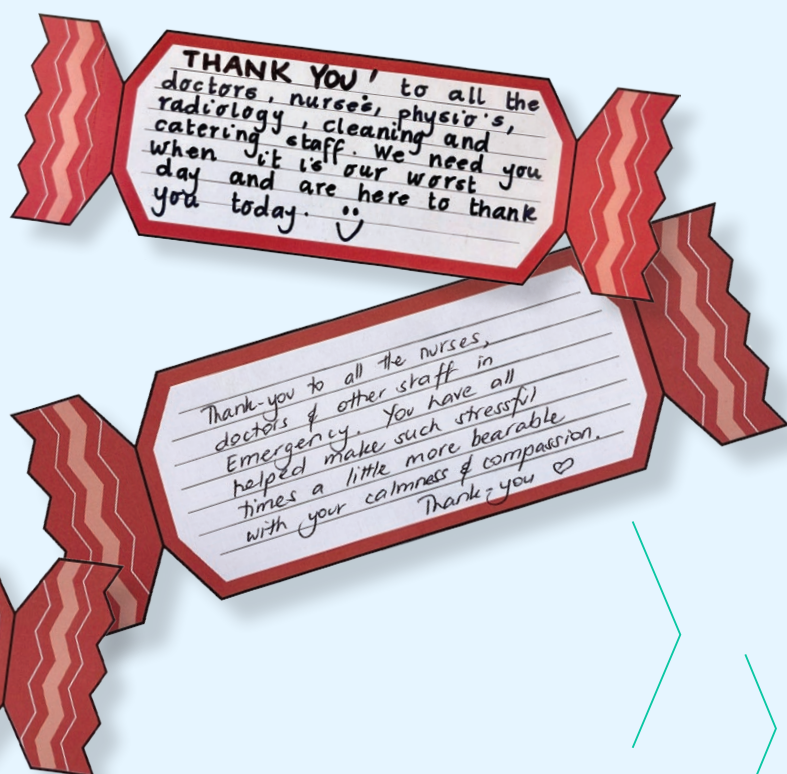 THANK YOU' to all the
doctors, nurses, physio's,
radiology, cleaning and
catering staff. We need you
when it is our worst
day and are here to thank
you today.
Thank-you to all the nurses,
doctors & other staff in
Emergency. You have all
helped make such stressful
times a little more bearable
with your calmness & compassion.
Thank-you ♡